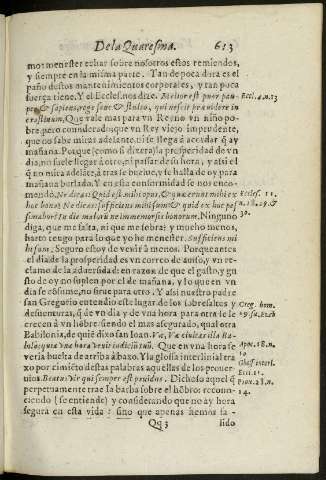 De la Quaresma. 613
mos menester echar sobre nosotros estos remiendos,
y siempre en la misma parte. Tan de poca dura es el
paño destos mantenimientos corporales, y tan poca
fuerça tiene. Y el Eccles. nos dize. Melior est puer pau-
per & sapiens, rege sene & stulto, qui nescit prævidere in
crastinum, Que vale mas para vn Reyno vn niño po-
bre, pero considerado; que vn Rey viejo imprudente,
que no sabe mirar adelante, ni se llega á acordar q̃ ay
mañana. Porque (como à dizen) la prosperidad de vn
dia, no suele llegar à otro, ni passar de su hora, y assi el
q̃ no mira adelãte, à tras se buelue, y se halla de oy para
mañana burlado. Y en esta conformidad se nos enco-
mendò, Ne dicas: Quid est mihi opus, & quæ erunt mihi ex
hoc bona? Ne dicas: sufficiens mihi sum: & quid ex hoc pes
simabor? In die malorũ ne immemor sis bonorum. Ninguno
diga, que me falta, ni que me sobra; y mucho menos,
harto tengo para lo que yo he menester. Sufficiens mi
hi sum: Seguro estoy de venir à menos. Porque antes
el dia de la prosperidad es vn correo de auiso, y vn re-
clamo de la aduersidad: en razon de que el gasto, y gu
sto de oy no suplen por el de mañana, y lo que en vn
dia se cõsume, no sirue para otro. Y assi nuestro padre
san Gregorio entendio este lugar de los sobresaltos y
desuenturas, q̃ de vn dia y de vna hora para otra le le
crecen à vn hõbre, siendo el mas assegurado, qual otra
Babilonia, de quiẽ dixo san Ioan. Væ, Væ ciuitas illa Ba-
bilon: quia vna hora venit iudiciũ tuũ. Que en vna hora se
veria buelta de arriba àbaxo. Y la glossa interlinial tra
xo por cimiẽto destas palabras aquellas de los prouer
uios. Beatus vir qui semper est pauidus. Dichoso aquel q̃
perpetuamente trae la barba sobre el hõbro: recono-
ciendo (se entiende) y considerando que no ay hora
segura en esta vida: sino que apenas hemos sa-
Qq 3 lido
Eccl. 4. n. 13
Ecclес. 11.
n. 28. 29. &
30.
Greg. hom.
29. sup. Ezech
Apoc. 18. n.
10
Glos. interl.
Eccl. 11.
Prou. 28. n.
14.